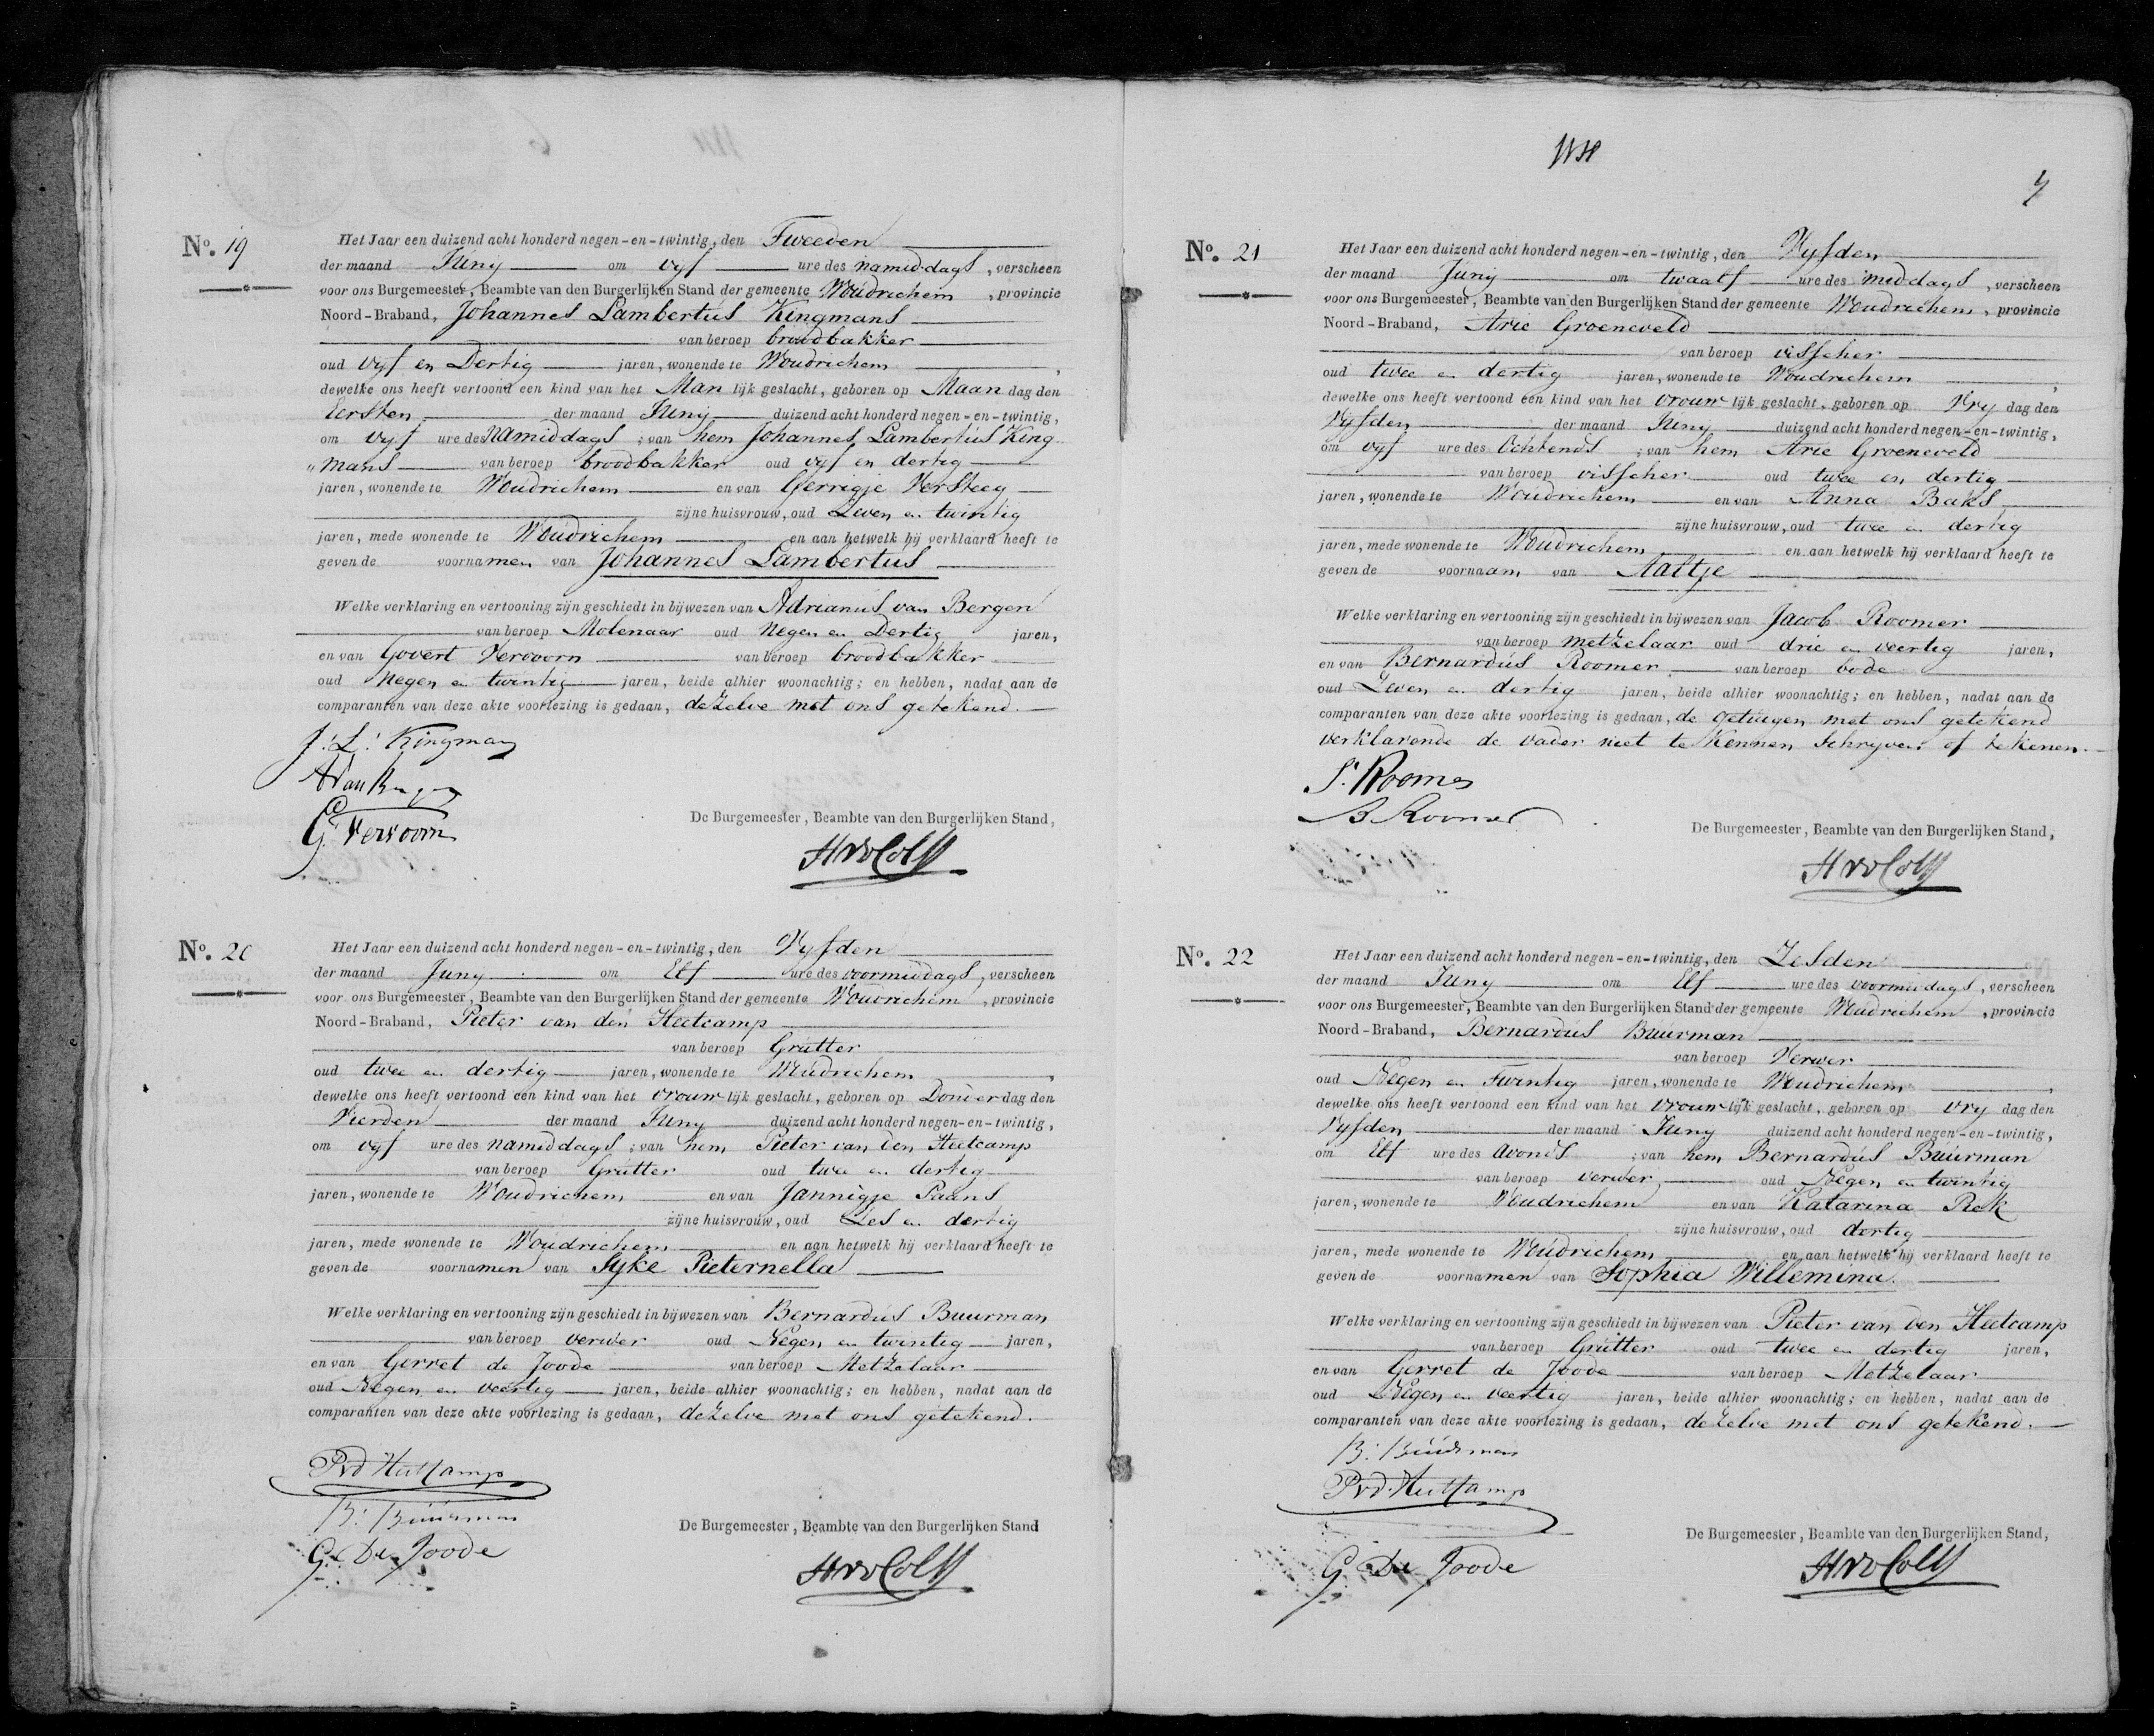 No. 19
Het Jaar een duizend acht honderd negen-en-twintig, den Tweeden
der maand Juny om vyf ure des namiddags, verscheen
voor ons Burgemeester, Beambte van den Burgerlijken Stand der gemeente Woudrichem, provincie
Noord-Braband, Johannes Lambertus Kingmans
van beroep broodbakker
oud vyf en Dertig jaren, wonende te Woudrichem,
dewelke ons heeft vertoond een kind van het Man lijk geslacht, geboren op Maan dag den
Eersten der maand Juny duizend acht honderd negen-en-twintig,
om vyf ure des Namiddags; van hem Johannes Lambertus King
"mans van beroep broodbakker oud vyf en dertig
jaren, wonende te Woudrichem en van Gerregje Versteeg
zijne huisvrouw, oud Zeven en twintig
jaren, mede wonende te Woudrichem en aan hetwelk hij verklaard heeft te
geven de voornamen van Johannes Lambertus
Welke verklaring en vertooning zijn geschiedt in bijwezen van Adrianus van Bergen
van beroep Molenaar oud Negen en Dertig jaren,
en van Govert Vervoorn van beroep broodbakker
oud Negen en twintig jaren, beide alhier woonachtig; en hebben, nadat aan de
comparanten van deze akte voorlezing is gedaan, dezelve met ons getekend.
J: L: Kingmans
A van Bergen
G. Vervoorn
De Burgemeester, Beambte van den Burgerlijken Stand,
No. 20
Het Jaar een duizend acht honderd negen-en-twintig, den Vyfden
der maand Juny om Elf ure des voormiddags, verscheen
voor ons Burgemeester, Beambte van den Burgerlijken Stand der gemeente Woudrichem, provincie
Noord-Braband, Pieter van den Heetcamp
van beroep Grutter
oud twee en dertig jaren, wonende te Woudrichem,
dewelke ons heeft vertoond een kind van het vrouw lijk geslacht, geboren op Donder dag den
Vierden der maand Juny duizend acht honderd negen-en-twintig,
om vyf ure des namiddags; van hem Pieter van den Heetcamp
van beroep Grutter oud twee en dertig
jaren, wonende te Woudrichem en van Jannigje Paans
zijne huisvrouw, oud Zes en dertig
jaren, mede wonende te Woudrichem en aan hetwelk hij verklaard heeft te
geven de voornamen van Syke Pieternella
Welke verklaring en vertooning zijn geschiedt in bijwezen van Bernardus Buurman
van beroep verwer oud Negen en twintig jaren,
en van Gerret de Joode van beroep Metzelaar
oud Negen en veertig jaren, beide alhier woonachtig; en hebben, nadat aan de
comparanten van deze akte voorlezing is gedaan, dezelve met ons getekend.
PvdHeetcamp
B: Buurman
G. De Joode
De Burgemeester, Beambte van den Burgerlijken Stand
No. 21
Het Jaar een duizend acht honderd negen-en-twintig, den Vyfden
der maand Juny om twaalf ure des middags, verscheen
voor ons Burgemeester, Beambte van den Burgerlijken Stand der gemeente Woudrichem, provincie
Noord-Braband, Arie Groeneveld
van beroep visscher
oud twee en dertig jaren, wonende te Woudrichem,
dewelke ons heeft vertoond een kind van het vrouw lijk geslacht, geboren op Vry dag den
Vyfden der maand Juny duizend acht honderd negen-en-twintig,
om vyf ure des Ochtends; van hem Arie Groeneveld
van beroep visscher oud twee en dertig
jaren, wonende te Woudrichem en van Anna Baks
zijne huisvrouw, oud twee en dertig
jaren, mede wonende te Woudrichem en aan hetwelk hij verklaard heeft te
geven de voornaam van Aaltje
Welke verklaring en vertooning zijn geschiedt in bijwezen van Jacob Roomer
van beroep metzelaar oud drie en veertig jaren,
en van Bernardus Roomer van beroep bode
oud Zeven en dertig jaren, beide alhier woonachtig; en hebben, nadat aan de
comparanten van deze akte voorlezing is gedaan, de getuigen met ons getekend
verklarende de vader niet te kennen schryven of tekenen.
J. Roomer
B Roomer
De Burgemeester, Beambte van den Burgerlijken Stand,
No. 22
Het Jaar een duizend acht honderd negen-en-twintig, den Zesden
der maand Juny om Elf ure des voormiddags, verscheen
voor ons Burgemeester, Beambte van den Burgerlijken Stand der gemeente Woudrichem, provincie
Noord-Braband, Bernardus Buurman
van beroep Verwer
oud Negen en Twintig jaren, wonende te Woudrichem,
dewelke ons heeft vertoond een kind van het vrouw lijk geslacht, geboren op vry dag den
Vyfden der maand Juny duizend acht honderd negen-en-twintig,
om Elf ure des avonds; van hem Bernardus Buurman
van beroep verwer oud Negen en twintig
jaren, wonende te Woudrichem en van Katarina Rek
zijne huisvrouw, oud dertig
jaren, mede wonende te Woudrichem en aan hetwelk hij verklaard heeft te
geven de voornamen van Sophia Willemina.
Welke verklaring en vertooning zijn geschiedt in bijwezen van Pieter van den Heetcamp
van beroep Grutter oud twee en dertig jaren,
en van Gerret de Joode van beroep Metzelaar
oud Negen en veertig jaren, beide alhier woonachtig; en hebben, nadat aan de
comparanten van deze akte voorlezing is gedaan, dezelve met ons getekend.
B: Buurman
PvdHeetcamp
G De Joode
De Burgemeester, Beambte van den Burgerlijken Stand,